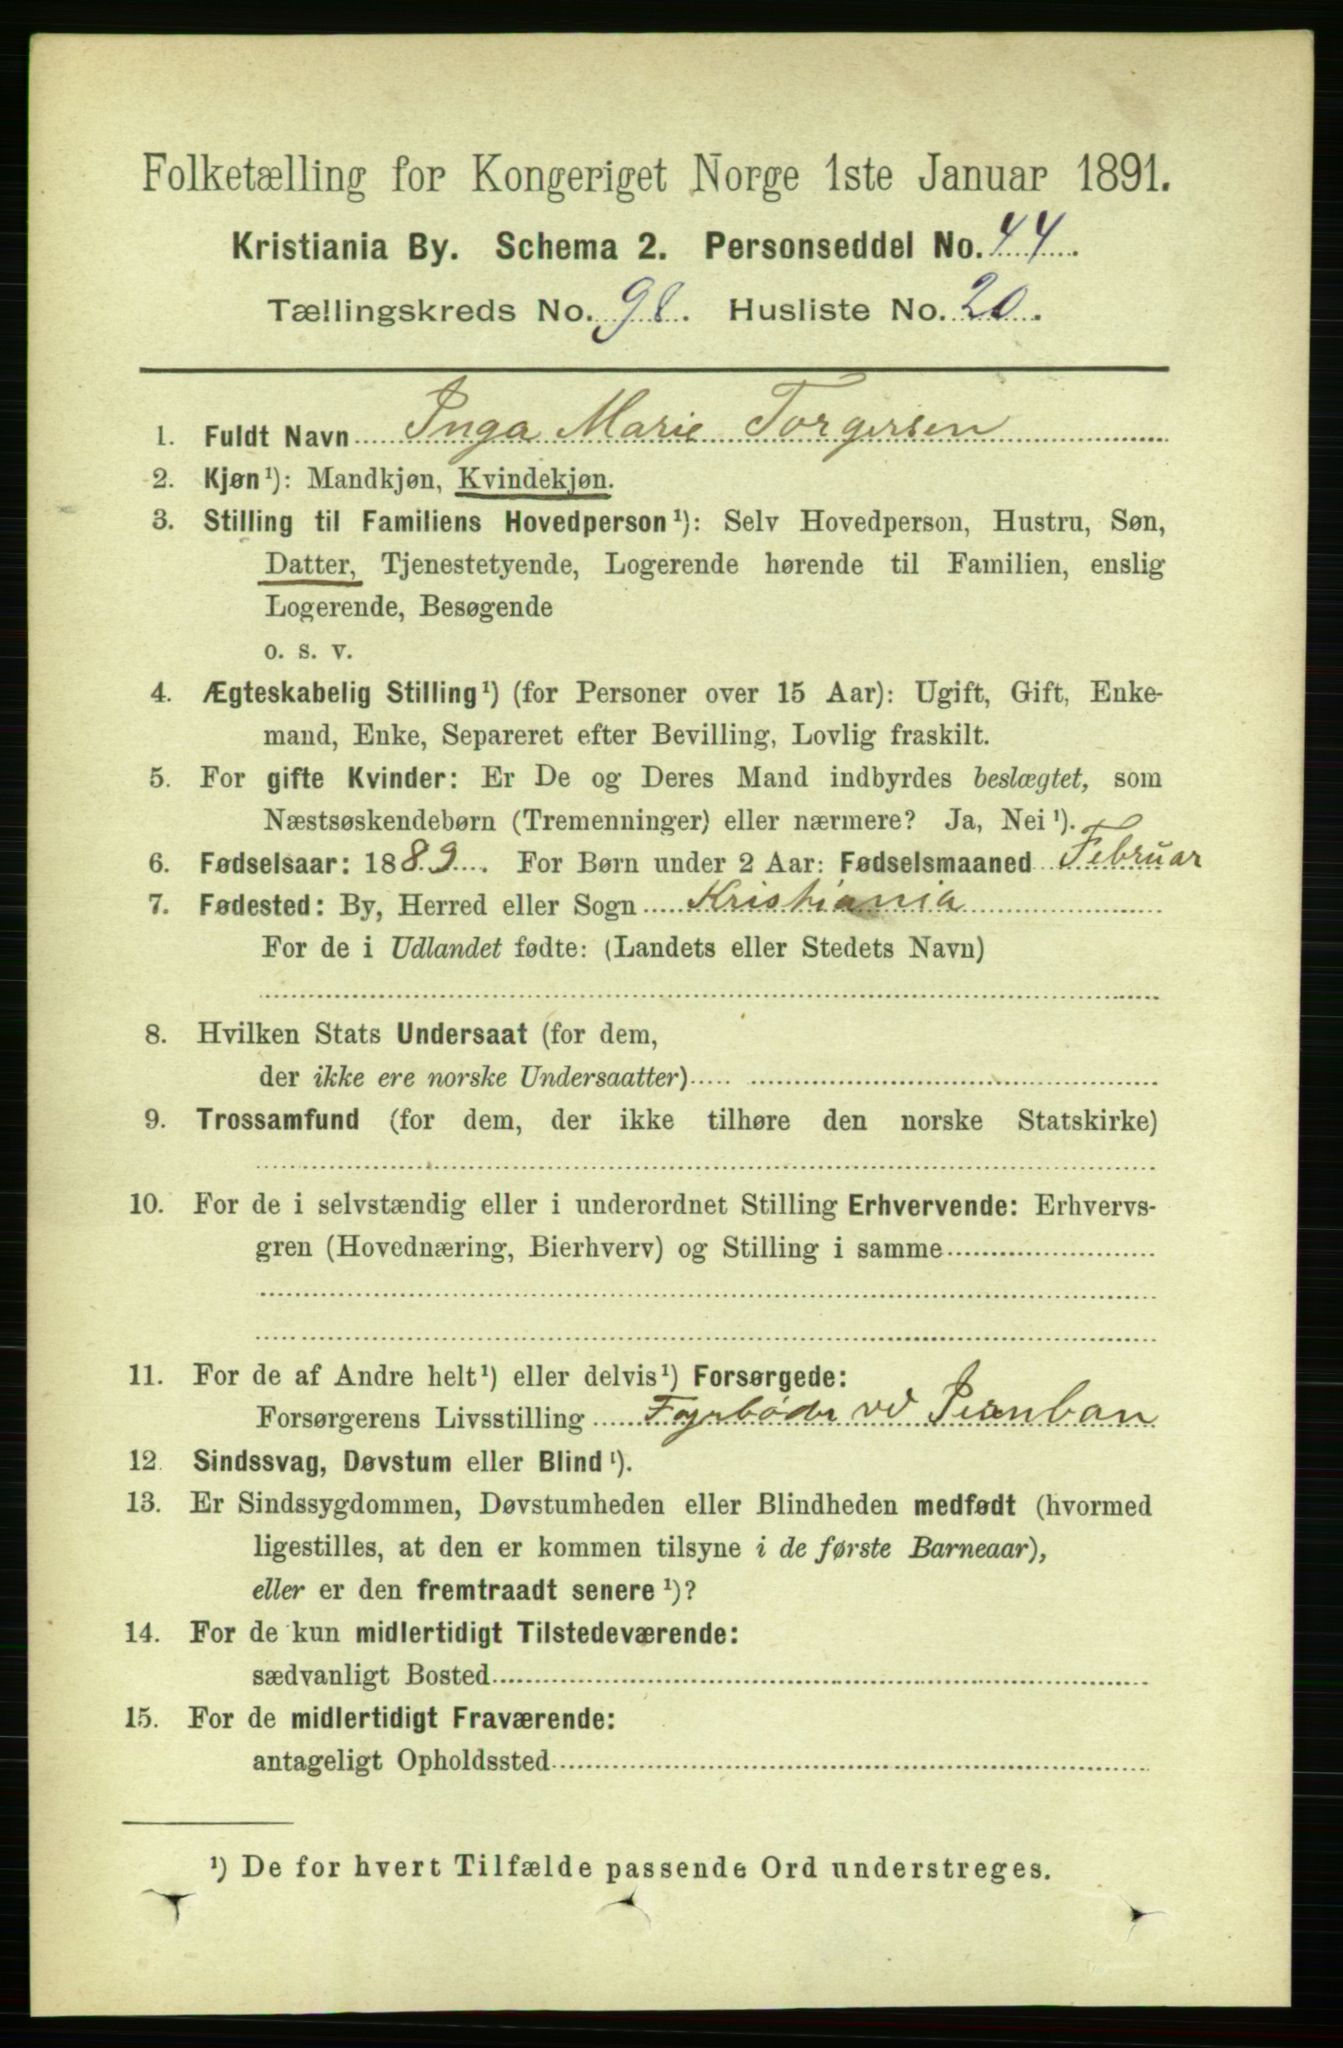 Folketælling for Kongeriget Norge 1ste Januar 1891.
Kristiania By. Schema 2. Personseddel No. 44.
Tællingskreds No. 98. Husliste No. 20.
1. Fuldt Navn Inga Marie Torgersen
2. Kjøn¹): Mandkjøn, Kvindekjøn.
3. Stilling til Familiens Hovedperson¹): Selv Hovedperson, Hustru, Søn,
Datter, Tjenestetyende, Logerende hørende til Familien, enslig
Logerende, Besøgende
o. s. v.
4. Ægteskabelig Stilling¹) (for Personer over 15 Aar): Ugift, Gift, Enke-
mand, Enke, Separeret efter Bevilling, Lovlig fraskilt.
5. For gifte Kvinder: Er De og Deres Mand indbyrdes beslægtet, som
Næstsøskendebørn (Tremenninger) eller nærmere? Ja, Nei¹).
6. Fødselsaar: 1889. For Børn under 2 Aar: Fødselsmaaned Februar
7. Fødested: By, Herred eller Sogn Kristiania
For de i Udlandet fødte: (Landets eller Stedets Navn)
8. Hvilken Stats Undersaat (for dem,
der ikke ere norske Undersaatter)
9. Trossamfund (for dem, der ikke tilhøre den norske Statskirke)
10. For de i selvstændig eller i underordnet Stilling Erhvervende: Erhvervs-
gren (Hovednæring, Bierhverv) og Stilling i samme
11. For de af Andre helt¹) eller delvis¹) Forsørgede:
Forsørgerens Livsstilling Fyrbøder ved Jernban
12. Sindssvag, Døvstum eller Blind¹).
13. Er Sindssygdommen, Døvstumheden eller Blindheden medfødt (hvormed
ligestilles, at den er kommen tilsyne i de første Barneaar),
eller er den fremtraadt senere¹)?
14. For de kun midlertidigt Tilstedeværende:
sædvanligt Bosted
15. For de midlertidigt Fraværende:
antageligt Opholdssted
¹) De for hvert Tilfælde passende Ord understreges.